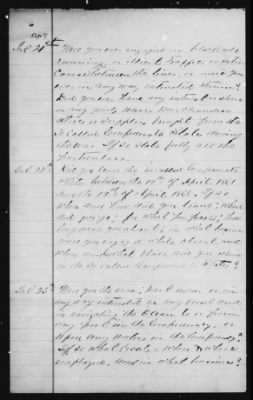 Int. 21st Were you ever engaged in blockade
running, or illicit traffic or inter-
course between the lines, or were you
ever in any way interested therein?
Did you ever have any interest or share
in any goods wares merchandise
stores or supplies brought from the
so called Confederate State during
the war. If so state fully all the
particulars.
Int. 22nd Did you leave the so called Confederate
States between the 19th of April 1861
and the 19th of April 1865. If so
when and how did you leave; Where
did you go; for what purpose; how
long were you absent; in what business
were you engaged while absent and
when and what place did you return
in the so called Confederate States?
Int. 23rd Were you the owner, part owner or in
any way interested in any vessel used
in navigating the Ocean to or from
any port in the Confederacy, or
upon any waters in the Confederacy?
If so what vessels, when & where
employed, and in what business?